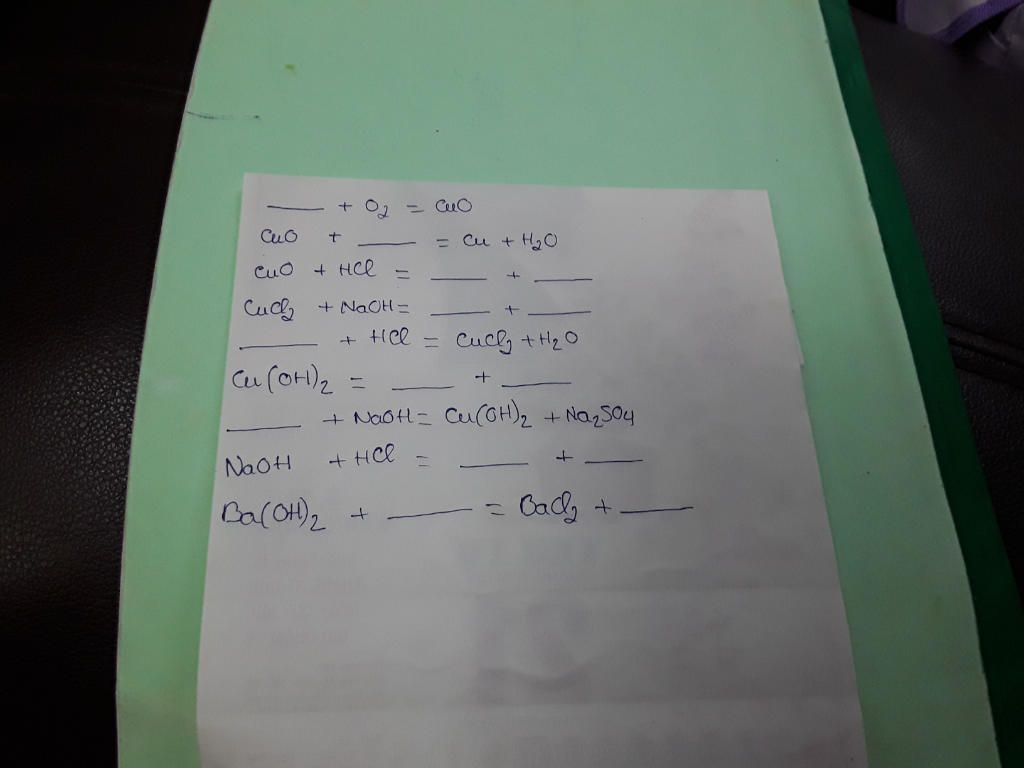 ____ + O₂ = CuO
CuO + ____ = Cu + H₂O
CuO + HCl = ____ + ____
CuCl₂ + NaOH = ____ + ____
____ + HCl = CuCl₂ + H₂O
Cu(OH)₂ = ____ + ____
____ + NaOH = Cu(OH)₂ + Na₂SO₄
NaOH + HCl = ____ + ____
Ba(OH)₂ + ____ = BaCl₂ + ____